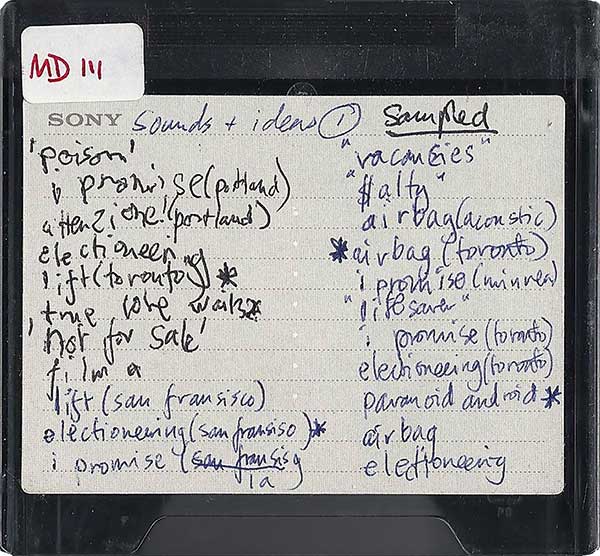 MD 111
SONY sounds + ideas ① sampled
'poison'
i promise(portland)
attenzione!(portland)
electioneering
lift(toronto)*
true love waits
'not for sale'
i'm a
lift (san fransisco)
electioneering(san fransiso)*
i promise (san fransis
la
"vacancies"
"$alty"
airbag(acoustic)
*airbag (toronto)
i promise(minnea)
"lifesaver"
i promise(toronto)
electioneering(toronto)
paranoid android *
airbag
electioneering